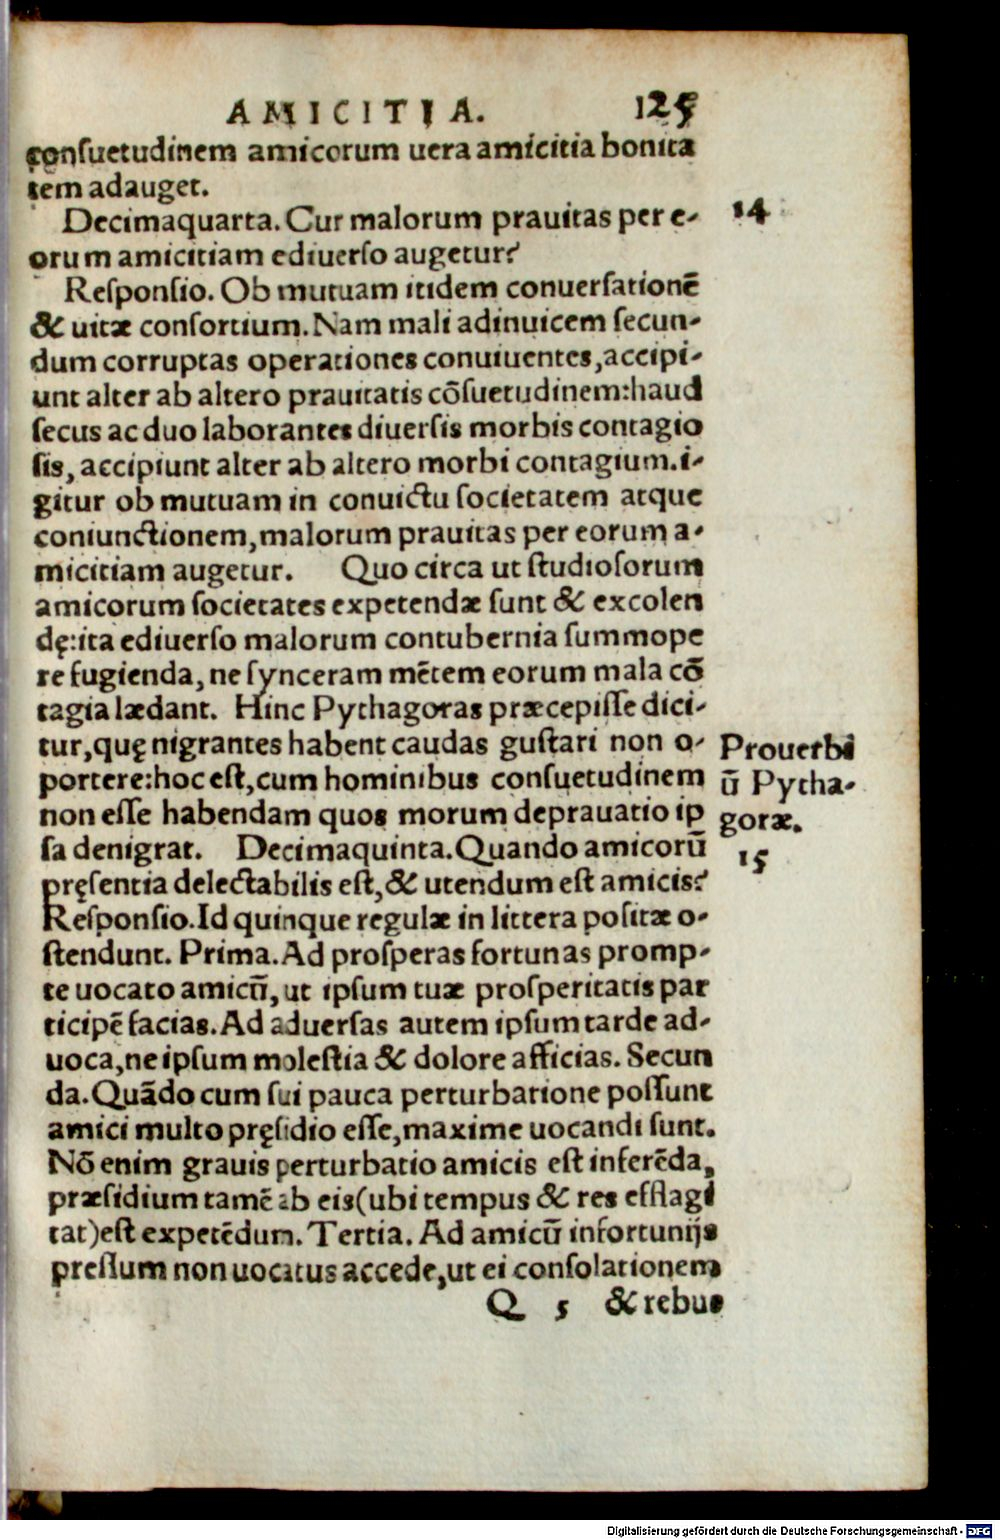 AMICITIA. 125
conſuetudinem amicorum uera amicitia bonita
tem adauget.
Decimaquarta. Cur malorum prauitas per e-
orum amicitiam ediuerſo augetur?
14
Reſponſio. Ob mutuam itidem conuerſationē
& uitæ conſortium. Nam mali adinuicem ſecun-
dum corruptas operationes conuiuentes, accipi-
unt alter ab altero prauitatis cōſuetudinem: haud
ſecus ac duo laborantes diuerſis morbis contagio
ſis, accipiunt alter ab altero morbi contagium. i-
gitur ob mutuam in conuictu ſocietatem atque
coniunctionem, malorum prauitas per eorum a-
micitiam augetur. Quo circa ut ſtudioſorum
amicorum ſocietates expetendæ ſunt & excolen
dę: ita ediuerſo malorum contubernia ſummope
re fugienda, ne ſynceram mētem eorum mala cō
tagia lædant. Hinc Pythagoras præcepiſſe dici-
tur, quę nigrantes habent caudas guſtari non o-
portere: hoc eſt, cum hominibus conſuetudinem
non eſſe habendam quos morum deprauatio ip
ſa denigrat. Decimaquinta. Quando amicorū
pręſentia delectabilis eſt, & utendum eſt amicis?
Prouerbi
ū Pytha-
goræ.
15
Reſponſio. Id quinque regulæ in littera poſitæ o-
ſtendunt. Prima. Ad proſperas fortunas promp-
te uocato amicū, ut ipſum tuæ proſperitatis par
ticipē facias. Ad aduerſas autem ipſum tarde ad-
uoca, ne ipſum moleſtia & dolore afficias. Secun
da. Quādo cum ſui pauca perturbatione poſſunt
amici multo pręſidio eſſe, maxime uocandi ſunt.
Nō enim grauis perturbatio amicis eſt inferēda,
præſidium tamē ab eis (ubi tempus & res efflagi
tat) eſt expetēdum. Tertia. Ad amicū infortunijs
preſſum non uocatus accede, ut ei conſolationem
Q 5 & rebus
Digitalisierung gefördert durch die Deutsche Forschungsgemeinschaft - DFG